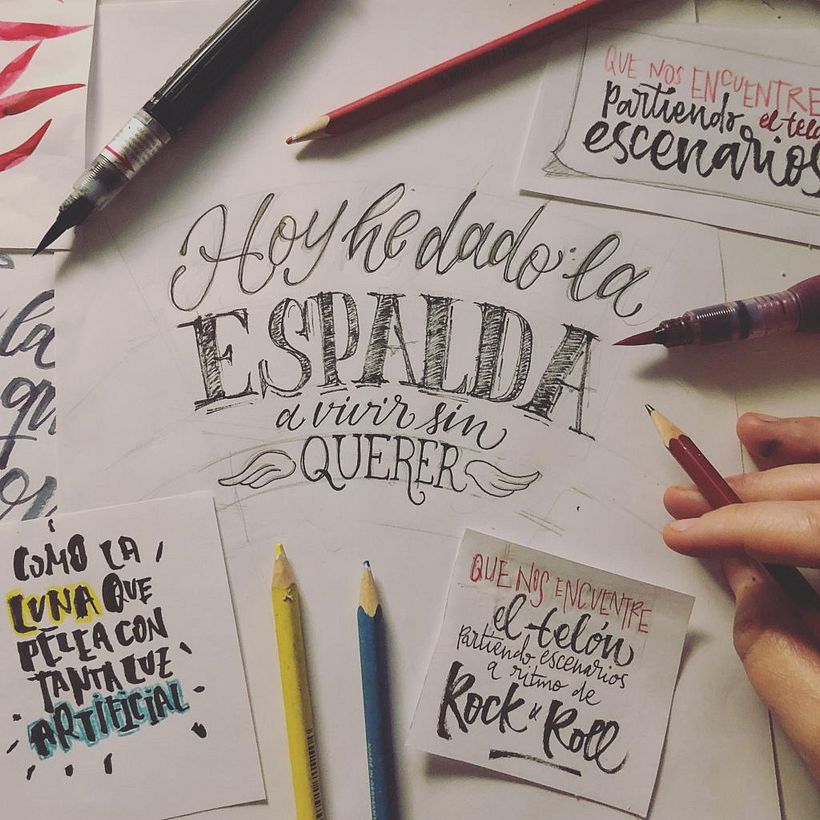 Hoy he dado la
ESPALDA
a vivir sin
QUERER
QUE NOS ENCUENTRE
Partiendo el teló
escenarios
la
qu
COMO LA
LUNA QUE
PELEA CON
TANTA LUZ
ARTIFICIAL
QUE NOS ENCUENTRE
el telón
partiendo escenarios
a ritmo de
Rock n Roll